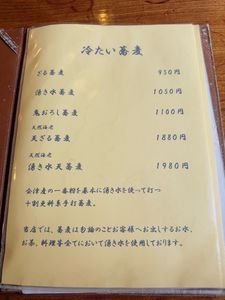 冷たい蕎麦
ざる蕎麦 950円
湧き水蕎麦 1050円
鬼おろし蕎麦 1100円
天然海老
天ざる蕎麦 1880円
天然海老
湧き水天蕎麦 1980円
会津産の一番粉を基本に湧き水を使って打つ
十割更科系手打蕎麦。
当店では、蕎麦は勿論のことお客様へお出しするお水、
お茶、料理等全てにおいて湧き水を使用しております。